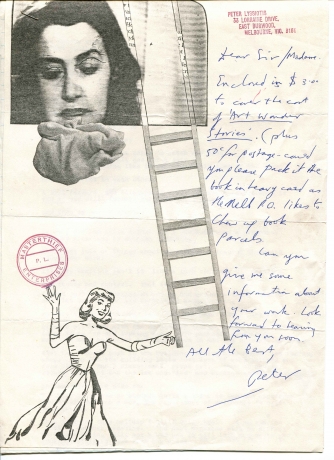 PETER LYSSIOTIS
VIC. 3151
Dear Sir/Madam.
Enclosed is $3.00
to cover the cost
of 'Art Wonder
Stories'. (plus
50¢ for postage - could
you please pack it the
book in heavy card as
the P.O. likes to
chew up book
parcels
Can you
give me some
information about
your work. Look
forward to hearing
from you soon.
All the Best,
Peter
MASTERTHIEF
P. L.
ENTERPRISES